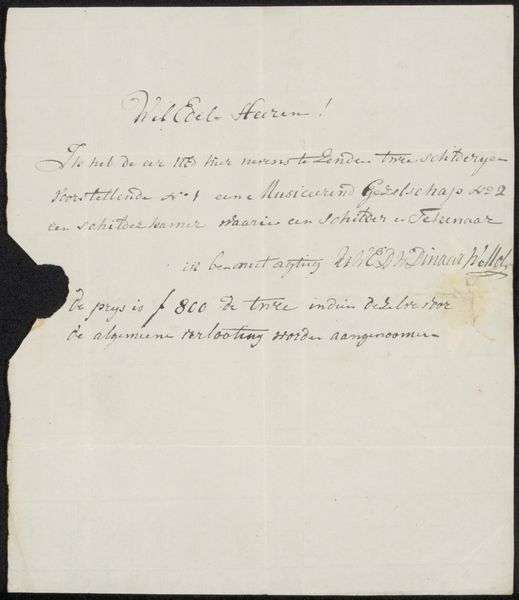 Wel Edele Heeren!
Ik heb de eer UED hier nevens te Zende twee schilderye
voorstellende No 1 eene Musiceerend Gezelschap No 2
een schilder kamer waarin een Schilder en Tekenaar
ik ben met agting UWED Dinaar
de prys is f 800 de twee indien dezelve voor
de algemeene verlooting worden aangenoomen